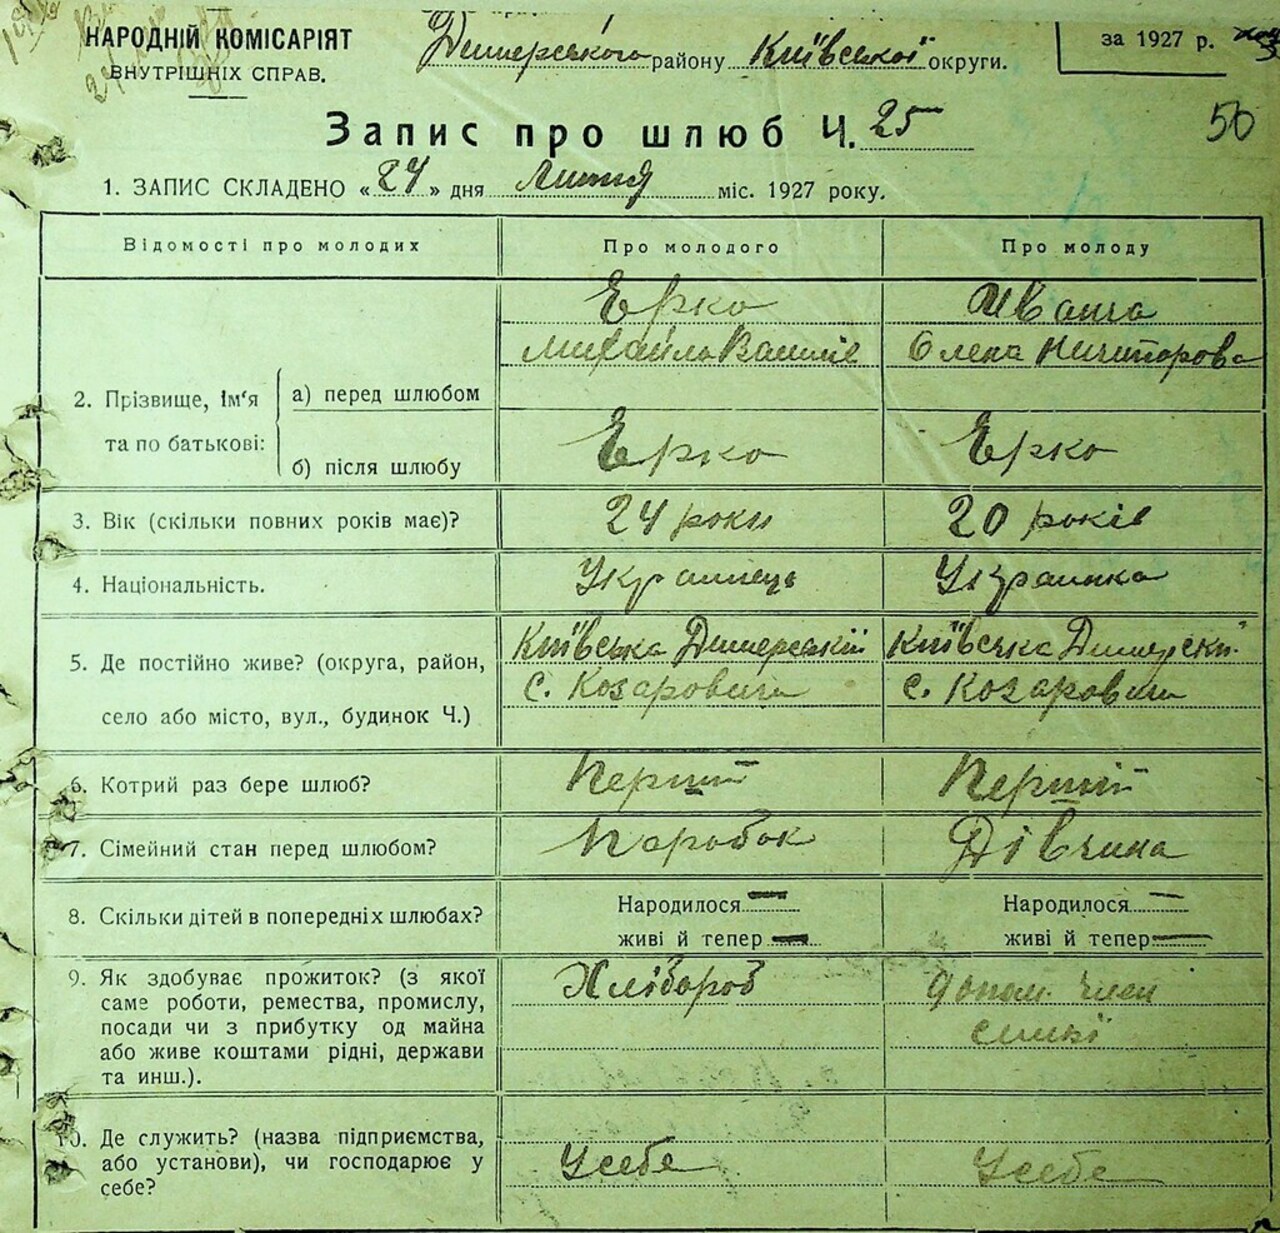 НАРОДНІЙ КОМІСАРІЯТ
ВНУТРІШНІХ СПРАВ.
Димерського району Київської округи.
за 1927 р.
50
Запис про шлюб Ч. 25
1. ЗАПИС СКЛАДЕНО «24» дня Лютня міс. 1927 року.
Відомості про молодих
Про молодого
Про молоду
2. Прізвище, ім'я та по батькові:
а) перед шлюбом
Ерко
Михайло Василів
Иваща
Олена Ничипорова
б) після шлюбу
Ерко
Ерко
3. Вік (скільки повних років має)?
24 роки
20 років
4. Національність.
Украинець
Украинка
5. Де постійно живе? (округа, район,
село або місто, вул., будинок Ч.)
Київська Димерський
с. Козаровичи
Київська Димерськ.
с. Козаровичи
6. Котрий раз бере шлюб?
Перший
Перший
7. Сімейний стан перед шлюбом?
Паробок
Дівчина
8. Скільки дітей в попередніх шлюбах?
Народилося —
живі й тепер —
Народилося —
живі й тепер —
9. Як здобуває прожиток? (з якої
саме роботи, ремества, промислу,
посади чи з прибутку од майна
або живе коштами рідні, держави
та инш.).
Хлібороб
допом. член
симї
10. Де служить? (назва підприємства,
або установи), чи господарює у
себе?
Усебе
Усебе